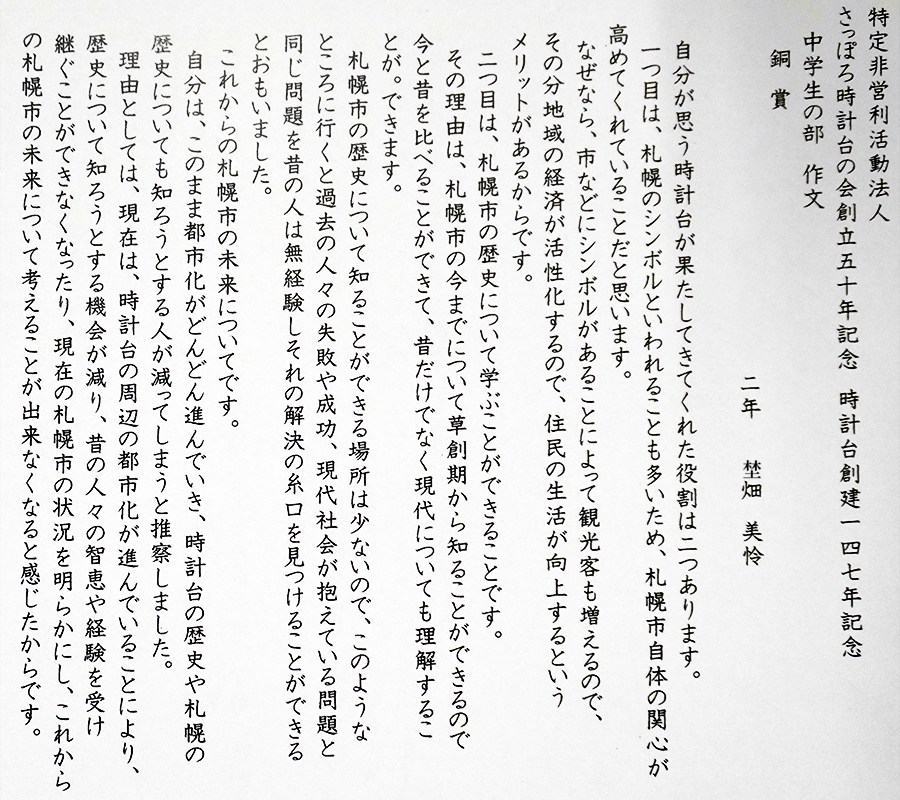 特定非営利活動法人
さっぽろ時計台の会創立五十年記念　時計台創建一四七年記念
中学生の部　作文
銅　賞
二年　埜畑　美怜
自分が思う時計台が果たしてきてくれた役割は二つあります。
一つ目は、札幌のシンボルといわれることも多いため、札幌市自体の関心が
高めてくれていることだと思います。
なぜなら、市などにシンボルがあることによって観光客も増えるので、
その分地域の経済が活性化するので、住民の生活が向上するという
メリットがあるからです。
二つ目は、札幌市の歴史について学ぶことができることです。
その理由は、札幌市の今までについて草創期から知ることができるので
今と昔を比べることができて、昔だけでなく現代についても理解するこ
とが。できます。
札幌市の歴史について知ることができる場所は少ないので、このような
ところに行くと過去の人々の失敗や成功、現代社会が抱えている問題と
同じ問題を昔の人は無経験しそれの解決の糸口を見つけることができる
とおもいました。
これからの札幌市の未来についてです。
自分は、このまま都市化がどんどん進んでいき、時計台の歴史や札幌の
歴史についても知ろうとする人が減ってしまうと推察しました。
理由としては、現在は、時計台の周辺の都市化が進んでいることにより、
歴史について知ろうとする機会が減り、昔の人々の智恵や経験を受け
継ぐことができなくなったり、現在の札幌市の状況を明らかにし、これから
の札幌市の未来について考えることが出来なくなると感じたからです。